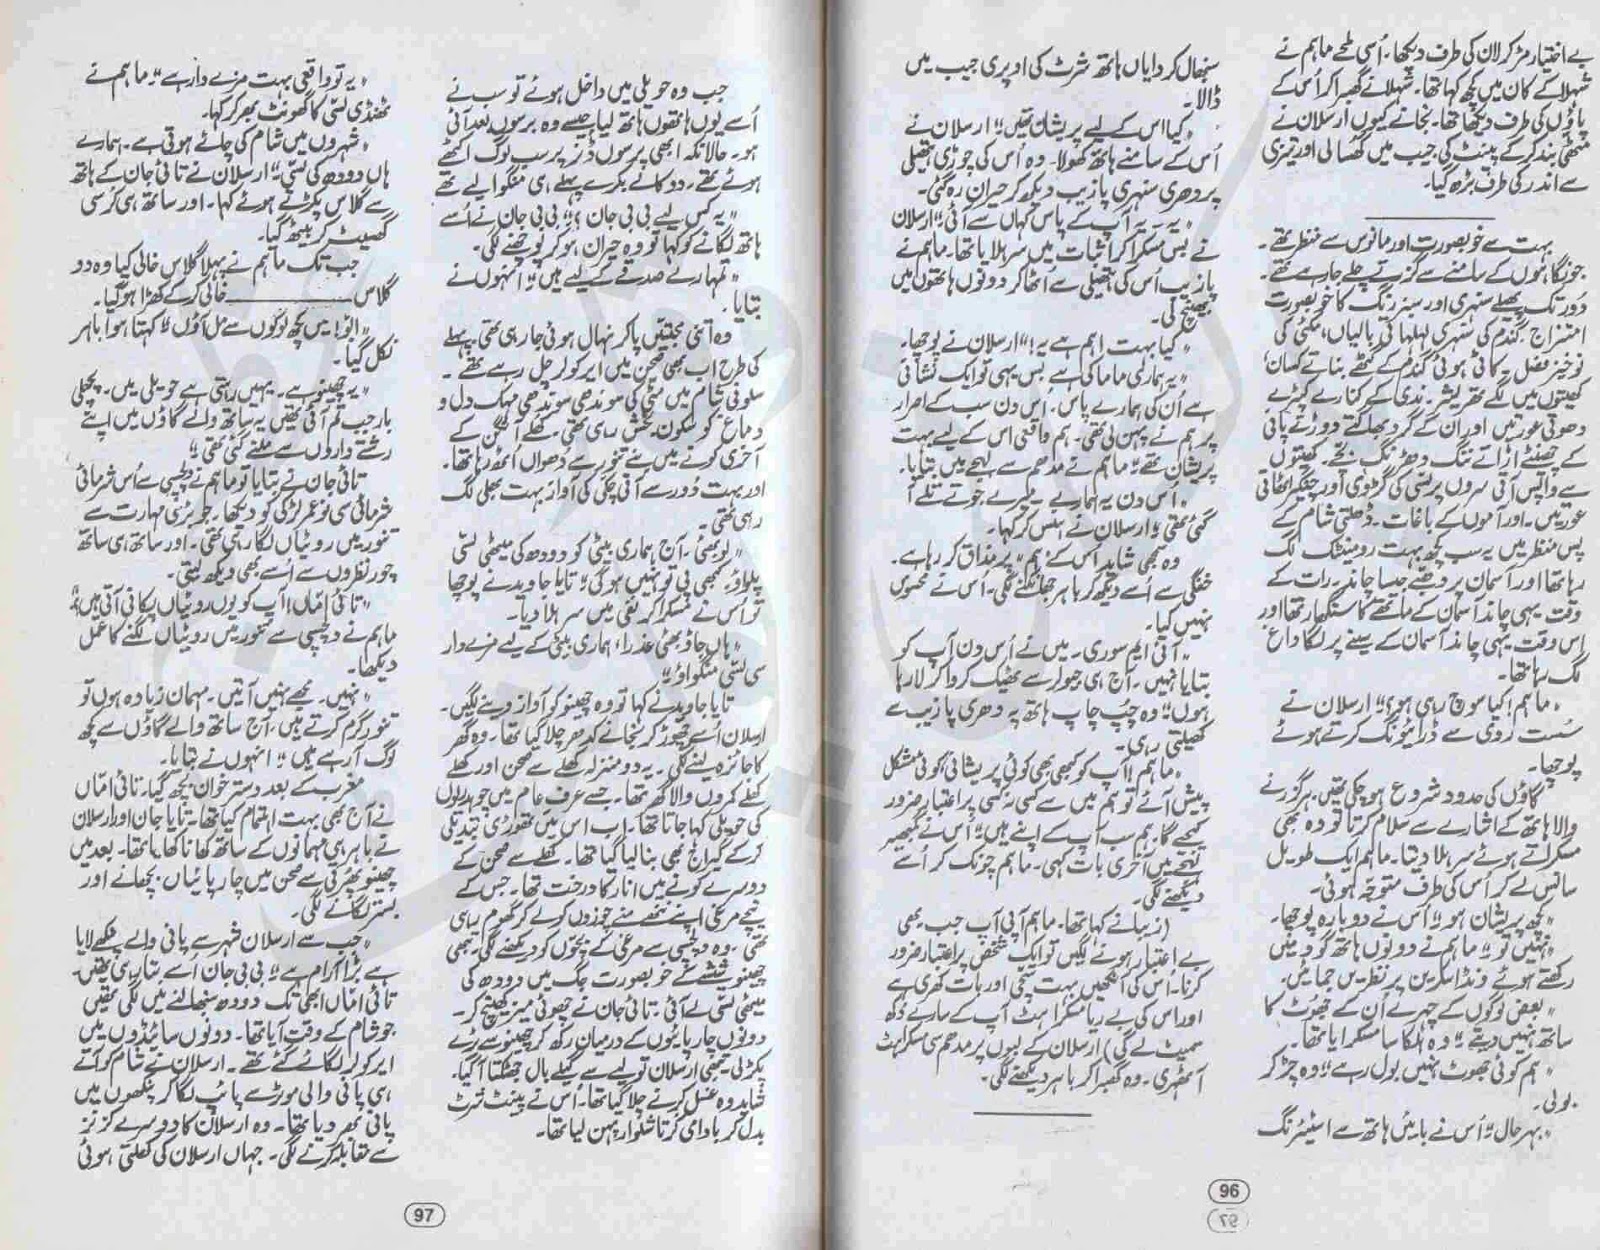 بے اختیار مڑ کر لان کی طرف دیکھا۔ اُسی لمحے ماہم نے
شہلا کے کان میں کچھ کہا تھا۔ شہلا نے گھبرا کر اُس کے
پاؤں کی طرف دیکھا تھا۔ نجانے کیوں ارسلان نے
مٹھی بند کر کے پینٹ کی جیب میں گھسا لی اور تیزی
سے اندر کی طرف بڑھ گیا۔
بہت سے خوبصورت اور مانوس سے منظر تھے۔
جو نگاہوں کے سامنے سے گزرتے چلے جا رہے تھے۔
دُور تک پھیلے سنہری اور سبز رنگ کا خوبصورت
امتزاج۔ گندم کی سنہری لہلہاتی بالیاں، مکئی کی
نوخیز فصل۔ کاٹی ہوئی گندم کے گٹھے بناتے کسان،
کھیتوں میں لگے تھریشر۔ ندی کے کنارے کپڑے
دھوتی عورتیں اور ان کے گرد بھاگتے دوڑتے پانی
کے چھینٹے اڑاتے ننگ دھڑنگ بچے۔ کھیتوں
سے واپس آتی سروں پر لسی کی گڑوی اور چنگیر اٹھاتی
عورتیں۔ اور آموں کے باغات۔ ڈھلتی شام کے
پس منظر میں یہ سب کچھ بہت رومینٹک لگ
رہا تھا اور آسمان پر دھبے جیسا چاند۔ رات کے
وقت یہی چاند آسمان کے ماتھے کا سنگھار تھا اور
اس وقت یہی چاند آسمان کے سینے پر لگا داغ
لگ رہا تھا۔
"ماہم! کیا سوچ رہی ہو؟" ارسلان نے
سُست روی سے ڈرائیونگ کرتے ہوئے
پوچھا۔
گاؤں کی حدود شروع ہو چکی تھیں۔ ہر گزرنے
والا ہاتھ کے اشارے سے سلام کرتا تو وہ بھی
مسکراتے ہوئے سر ہلا دیتا۔ ماہم ایک طویل
سانس لے کر اُس کی طرف متوجہ ہوئی۔
"کچھ پریشان ہو؟" اُس نے دوبارہ پوچھا۔
"نہیں تو" ماہم نے دونوں ہاتھ گود میں
رکھتے ہوئے ونڈ اسکرین پر نظریں جمائیں۔
"بعض لوگوں کے چہرے اُن کے جھوٹ کا
ساتھ نہیں دیتے" وہ ہلکا سا مسکرایا تھا۔
"ہم کوئی جھوٹ نہیں بول رہے" وہ چڑ کر
بولی۔
"بہرحال" اُس نے بائیں ہاتھ سے اسٹیئرنگ
سنبھال کر دایاں ہاتھ شرٹ کی اوپری جیب میں
ڈالا۔
"کیا اس کے لیے پریشان تھیں" ارسلان نے
اُس کے سامنے ہاتھ کھولا۔ وہ اُس کی چوڑی ہتھیلی
پر دھری سنہری پازیب دیکھ کر حیران رہ گئی۔
"یہ۔ یہ آپ کے پاس کہاں سے آئی" ارسلان
نے بس مسکرا کر اثبات میں سر ہلایا تھا۔ ماہم نے
پازیب اُس کی ہتھیلی سے اُٹھا کر دونوں ہاتھوں میں
بھینچ لی۔
"کیا بہت اہم ہے یہ!" ارسلان نے پوچھا۔
"یہ ہماری ماما کی ہے بس یہی تو ایک نشانی
ہے اُن کی ہمارے پاس۔ اُس دن سب کے اصرار
پر ہم نے پہن لی تھی۔ ہم واقعی اس کے لیے بہت
پریشان تھے" ماہم نے مدھم سے لہجے میں بتایا۔
"اُس دن یہ ہمارے۔ میرے جوتے تلے آ
گئی تھی" ارسلان نے ہنس کر کہا۔
وہ سمجھی شاید اُس کے "ہم" پر مذاق کر رہا ہے۔
خفگی سے اُسے دیکھ کر باہر جھانکنے لگی۔ اُس نے محسوس
نہیں کیا۔
"آئی ایم سوری۔ میں نے اُس دن آپ کو
بتایا نہیں۔ آج ہی جیولر سے ٹھیک کروا کر لا رہا
ہوں" وہ چُپ چاپ ہاتھ پہ دھری پازیب سے
کھیلتی رہی۔
"ماہم! آپ کو کبھی بھی کوئی پریشانی، کوئی مشکل
پیش آئے تو ہم میں سے کسی نہ کسی پر اعتبار ضرور
کیجیے گا۔ ہم سب آپ کے اپنے ہیں" اُس نے گمبھیر
لہجے میں آخری بات کہی۔ ماہم چونک کر اُسے
دیکھنے لگی۔
(زیبا نے کہا تھا۔ ماہم آپی آپ جب بھی
بے اعتبار ہونے لگیں تو ایک شخص پر اعتبار ضرور
کرنا۔ اُس کی آنکھیں بہت سچی اور بات کھری ہے
اور اس کی بے ریا مسکراہٹ آپ کے سارے دُکھ
سمیٹ لے گی) ارسلان کے لبوں پر مدھم سی مسکراہٹ
آ ٹھہری۔ وہ گھبرا کر باہر دیکھنے لگی۔
96
جب وہ حویلی میں داخل ہوئے تو سب نے
اُسے یوں ہاتھوں ہاتھ لیا جیسے وہ برسوں بعد آئی
ہو۔ حالانکہ ابھی پرسوں ڈنر پر سب لوگ اکٹھے
ہوئے تھے۔ دو کالے بکرے پہلے ہی منگوا لیے تھے
"یہ کس لیے بی بی جان؟" بی بی جان نے اُسے
ہاتھ لگانے کو کہا تو وہ حیران ہو کر پوچھنے لگی۔
"تمہارے صدقے کے لیے ہیں" اُنہوں نے
بتایا۔
وہ اتنی محبتیں پا کر نہال ہوئی جا رہی تھی، پہلے
کی طرح اب بھی صحن میں ایر کولر چل رہے تھے۔
سلونی شام میں مٹی کی سوندھی سوندھی مہک دل و
دماغ کو سکون بخش رہی تھی۔ کھلے آنگن کے
آخری کونے میں بنے تنور سے دُھواں اُٹھ رہا تھا۔
اور بہت دُور سے آتی چکی کی آواز بہت بھلی لگ
رہی تھی۔
"لو بھئی۔ آج ہماری بیٹی کو دودھ کی میٹھی لسی
پلواؤ۔ کبھی پی تو نہیں ہو گی" تایا جاوید نے پوچھا
تو اُس نے مسکرا کر نفی میں سر ہلا دیا۔
"ہاں جاؤ بھئی عذرا، ہماری بیٹی کے لیے مزے دار
سی لسی منگواؤ"
تایا جاوید نے کہا تو وہ چھینو کو آواز دینے لگیں۔
ارسلان اُسے چھوڑ کر نجانے کدھر چلا گیا تھا۔ وہ گھر
کا جائزہ لینے لگی۔ یہ دو منزلہ کھلے سے صحن اور کھلے
کھلے کمروں والا گھر تھا۔ جسے عرف عام میں چوہدریوں
کی حویلی کہا جاتا تھا۔ اب اس میں تھوڑی تبدیلی
کر کے گیراج بھی بنا لیا گیا تھا۔ کھلے سے صحن کے
دوسرے کونے میں انار کا درخت تھا۔ جس کے
نیچے مرغی اپنے ننھے منے چوزوں کو لے کر گھوم رہی
تھی۔ وہ دلچسپی سے مرغی کے بچوں کو دیکھنے لگی۔ تبھی
چھینو شیشے کے خوبصورت جگ میں دودھ کی
میٹھی لسی لے آئی۔ تائی جان نے چھوٹی میز کھینچ کر
دونوں چارپائیوں کے درمیان رکھ کر چھینو سے ٹرے
پکڑ لی۔ تبھی ارسلان تولیے سے گیلے بال جھٹکتا آ گیا۔
شاید وہ غسل کرنے چلا گیا تھا۔ اُس نے پینٹ شرٹ
بدل کر بادامی کرتا شلوار پہن لیا تھا۔
"یہ تو واقعی بہت مزے دار ہے"۔ ماہم نے
ٹھنڈی لسی کا گھونٹ بھر کر کہا۔
"شہروں میں شام کی چائے ہوتی ہے۔ ہمارے
ہاں دودھ کی لسی" ارسلان نے تائی جان کے ہاتھ
سے گلاس پکڑتے ہوئے کہا۔ اور ساتھ ہی کرسی
گھسیٹ کر بیٹھ گیا۔
جب تک ماہم نے پہلا گلاس خالی کیا وہ دو
گلاس خالی کر کے کھڑا ہو گیا۔
"ابو! میں کچھ لوگوں سے مل آؤں" کہتا ہوا باہر
نکل گیا۔
"یہ چھینو ہے۔ یہیں رہتی ہے حویلی میں۔ پچھلی
بار جب تم آئی تھیں یہ ساتھ والے گاؤں میں اپنے
رشتے داروں سے ملنے گئی تھی"
تائی جان نے بتایا تو ماہم نے دلچسپی سے اُس شرمائی
شرمائی سی نوعمر لڑکی کو دیکھا۔ جو بڑی مہارت سے
تنور میں روٹیاں لگا رہی تھی۔ اور ساتھ ہی ساتھ
چور نظروں سے اُسے بھی دیکھ لیتی۔
"تائی امّاں! آپ کو یوں روٹیاں پکانی آتی ہیں؟"
ماہم نے دلچسپی سے تنور میں روٹیاں لگنے کا عمل
دیکھا۔
"نہیں۔ مجھے نہیں آتیں۔ مہمان زیادہ ہوں تو
تنور گرم کرتے ہیں، آج ساتھ والے گاؤں سے کچھ
لوگ آ رہے ہیں" انہوں نے بتایا۔
مغرب کے بعد دسترخوان بچھ گیا۔ تائی امّاں
نے آج بھی بہت اہتمام کیا تھا۔ تایا جان اور ارسلان
نے باہر ہی مہمانوں کے ساتھ کھانا کھایا تھا۔ بعد میں
چھینو پھرتی سے صحن میں چارپائیاں بچھانے اور
بستر لگانے لگی۔
"جب سے ارسلان شہر سے پانی والے پنکھے لایا
ہے بڑا آرام ہے" بی بی جان اُسے بتا رہی تھیں۔
تائی امّاں ابھی تک دودھ سنبھالنے میں لگی تھیں
جو شام کے وقت آیا تھا۔ دونوں سائیڈوں میں
ایر کولر لگائے گئے تھے۔ ارسلان نے شام کو آتے
ہی پانی والی موٹر سے پائپ لگا کر پنکھوں میں
پانی بھر دیا تھا۔ وہ ارسلان کا دوسرے کزنز
سے مقابلہ کرنے لگی۔ جہاں ارسلان کی کھلتی ہوئی
97